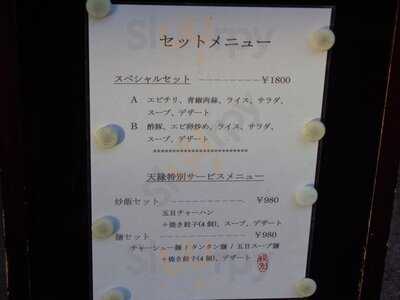 セットメニュー
スペシャルセット ---------- ￥1800
A エビチリ、青椒肉絲、ライス、サラダ、
スープ、デザート
B 酢豚、エビ卵炒め、ライス、サラダ、
スープ、デザート
************************
天緑特別サービスメニュー
炒飯セット ---------- ￥980
五目チャーハン
＋焼き餃子(4個)、スープ、デザート
麺セット ---------- ￥980
チャーシュー麺 / タンタン麺 / 五目スープ麺
＋焼き餃子(4個)、デザート